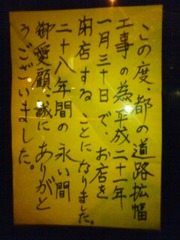 この度、都の道路拡幅
工事の為平成二十一年
一月三十日で、お店を
閉店することになりました。
二十八年間の永い間
御愛顧、誠にありがと
うございました。